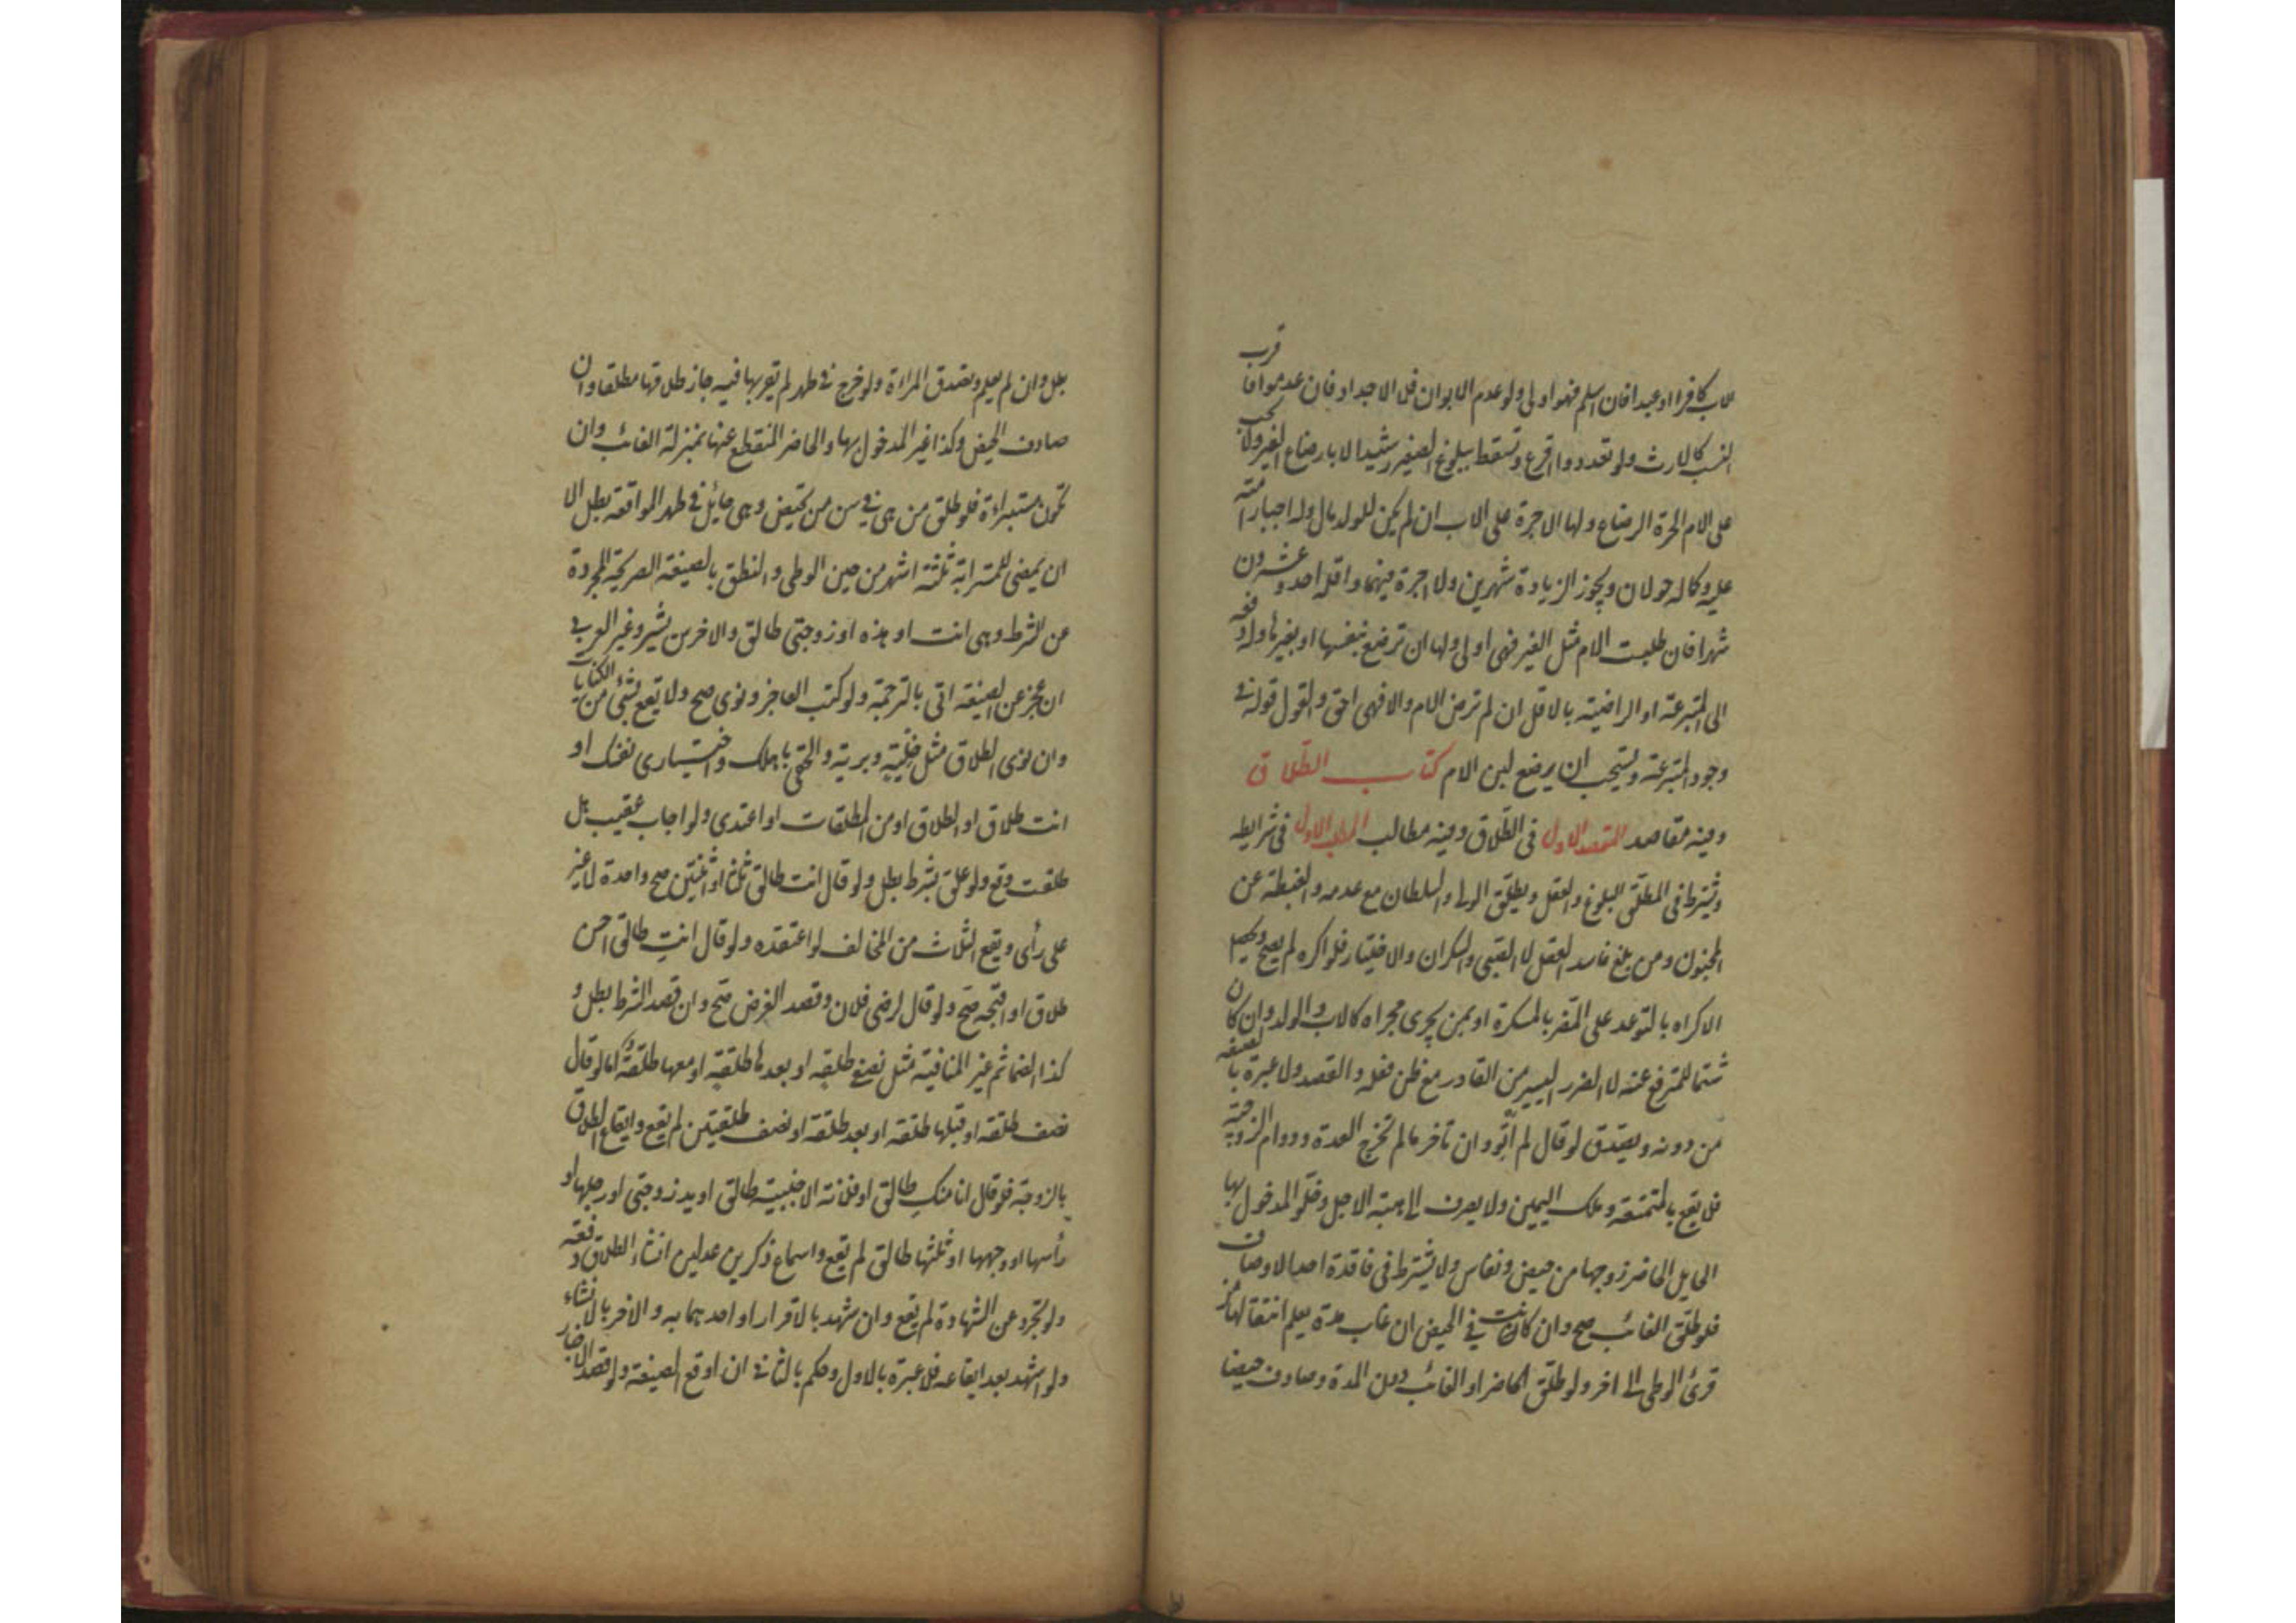 الاب كافرا او عبدا فان اسلم فهو اولى ولو عدم الابوان فللاجداد فان عدموا فاقرب
النسب كالارث ولو تعددوا اقرع وتسقط ببلوغ الصغير رشيدا لا بارضاع الغير ولا يجب
على الام الحرة الرضاع ولها الاجرة على الاب ان لم يكن للولد مال وله اجبار امته
عليه وكماله حولان ويجوز الزيادة شهرين ولا اجرة فيهما واقله احد وعشرون
شهرا فان طلبت الام مثل الغير فهى اولى ولها ان ترضع بنفسها او بغيرها وله دفعه
الى المتبرعة او الراضية بالاقل ان لم ترض الام والا فهى احق والقول قوله فى
وجود المتبرعة ويستحب ان يرضع لبن الام كتاب الطلاق
وفيه مقاصد المقصد الاول فى الطلاق وفيه مطالب المطلب الاول فى شرايطه
ويشترط فى المطلق البلوغ والعقل ويطلق الولى والسلطان مع عدمه والغبطة عن
المجنون ومن بلغ فاسد العقل لا الصبى والسكران والاختيار فلو اكره لم يصح ويحصل
الاكراه بالتوعد على المضر بالمكره او بمن يجرى مجراه كالاب والولد وان كان
شتما للمترفع عنه لا الضرر اليسير من القادر مع ظن فعله والقصد ولا عبرة بالصيغة
من دونه ويصدق لو قال لم انو وان تاخر ما لم تخرج العدة ودوام الزوجية
فلا يقع بالمتمتعة وملك اليمين ولا يصرف الى هبة الاجل وخلو المدخول بها
الحايل الحاضر زوجها من حيض ونفاس ولا يشترط فى فاقدة احد الاوصاف
فلو طلق الغائب صح وان كانت فى الحيض ان غاب مدة يعلم انتقالها من
قرئ الوطى الى اخر ولو طلق الحاضر او الغائب دون المدة وصادف حيضا
بطل وان لم يعلم ويصدق المراة ولو خرج فى طهر لم يقربها فيه جاز طلاقها مطلقا وان
صادف الحيض وكذا غير المدخول بها والحاضر المنقطع عنها بمنزلة الغائب وان
تكون مستبراة فلو طلق من هى فى سن من تحيض وهى حائل فى طهر المواقعة بطل الا
ان يمضى للمسترابة ثلثة اشهر من حين الوطى والنطق بالصيغة الصريحة المجردة
عن الشرط وهى انت او هذه او زوجتى طالق والاخرس يشير وغير العربى
ان عجز عن الصيغة اتى بالترجمة ولو كتب العاجز ونوى صح ولا يقع بشئ من الكنايات
وان نوى الطلاق مثل خلية وبرية والحقى باهلك واختيارى نفسك او
انت طلاق او الطلاق او من المطلقات او اعتدى ولو اجاب عقيب هل
طلقت وقع ولو علق بشرط بطل ولو قال انت طالق ثلثا او اثنتين صح واحدة لا غير
على رأى ويقع الثلاث من المخالف لو اعتقده ولو قال انت طالق احسن
طلاق او اقبحه صح ولو قال لرضى فلان وقصد الغرض صح وان قصد الشرط بطل و
كذا الضمائم غير المنافية مثل نصفى طلقة او بعدها طلقة او معها طلقة اما لو قال
نصف طلقة او قبلها طلقة او بعد طلقة او نصف طلقتين لم يقع وايقاع الطلاق
بالزوجة فلو قال انا منك طالق او فلانة الاجنبية طالق او يد زوجتى او رجلها او
رأسها او وجهها او ثلثها طالق لم يقع واسماع ذكرين عدلين انشاء الطلاق دفعة
ولو تجرد عن الشهادة لم يقع وان شهد بالاقرار او احدهما به والاخر بالانشاء
ولو اشهد بعد ايقاعه فلا عبرة بالاول وحكم بالثانى ان اوقع الصيغة ولو قصد الاخبار